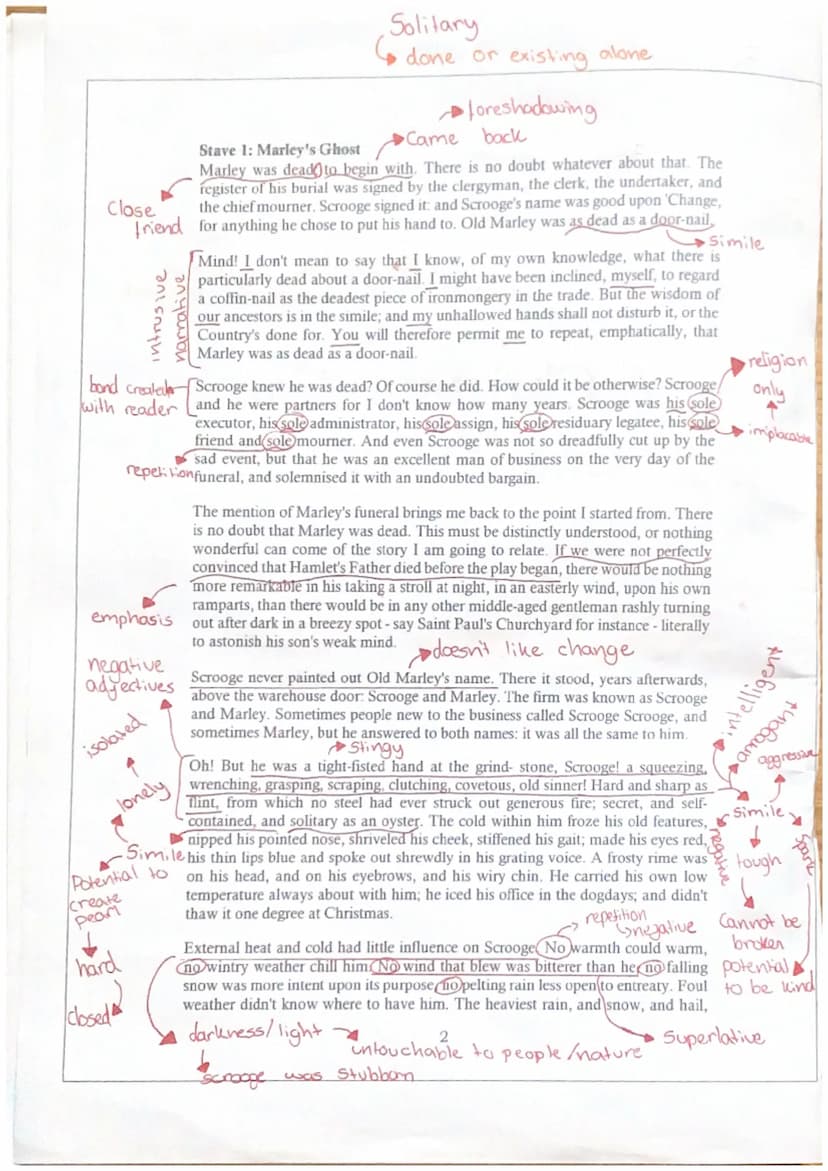 Solitary
done or existing alone
foreshadowing
Came back
Stave 1: Marley's Ghost
Marley was dead: to begin with. There is no doubt whatever about that. The
register of his burial was signed by the clergyman, the clerk, the undertaker, and
the chief mourner. Scrooge signed it: and Scrooge's name was good upon 'Change,
for anything he chose to put his hand to. Old Marley was as dead as a door-nail.
Close
friend
Simile
Mind! I don't mean to say that I know, of my own knowledge, what there is
particularly dead about a door-nail. I might have been inclined, myself, to regard
a coffin-nail as the deadest piece of ironmongery in the trade. But the wisdom of
our ancestors is in the simile; and my unhallowed hands shall not disturb it, or the
Country's done for. You will therefore permit me to repeat, emphatically, that
Marley was as dead as a door-nail.
intrusive
narrative
religion
only
implacable
bond created
with reader
Scrooge knew he was dead? Of course he did. How could it be otherwise? Scrooge
and he were partners for I don't know how many years. Scrooge was his sole
executor, his sole administrator, his sole assign, his sole residuary legatee, his sole
friend and sole mourner. And even Scrooge was not so dreadfully cut up by the
sad event, but that he was an excellent man of business on the very day of the
funeral, and solemnised it with an undoubted bargain.
repetition
The mention of Marley's funeral brings me back to the point I started from. There
is no doubt that Marley was dead. This must be distinctly understood, or nothing
wonderful can come of the story I am going to relate. If we were not perfectly
convinced that Hamlet's Father died before the play began, there would be nothing
more remarkable in his taking a stroll at night, in an easterly wind, upon his own
ramparts, than there would be in any other middle-aged gentleman rashly turning
out after dark in a breezy spot - say Saint Paul's Churchyard for instance - literally
to astonish his son's weak mind.
emphasis
doesn't like change
negative
adjectives
Scrooge never painted out Old Marley's name. There it stood, years afterwards,
above the warehouse door: Scrooge and Marley. The firm was known as Scrooge
and Marley. Sometimes people new to the business called Scrooge Scrooge, and
sometimes Marley, but he answered to both names: it was all the same to him.
Stingy
isolated
lonely
intelligent
arrogant
aggressive
Oh! But he was a tight-fisted hand at the grind- stone, Scrooge! a squeezing,
wrenching, grasping, scraping, clutching, covetous, old sinner! Hard and sharp as
flint, from which no steel had ever struck out generous fire; secret, and self-
contained, and solitary as an oyster. The cold within him froze his old features,
nipped his pointed nose, shriveled his cheek, stiffened his gait; made his eyes red,
his thin lips blue and spoke out shrewdly in his grating voice. A frosty rime was
on his head, and on his eyebrows, and his wiry chin. He carried his own low
temperature always about with him; he iced his office in the dogdays; and didn't
thaw it one degree at Christmas.
Simile
Potential to
create
pearl
hard
closed
Simile
negative
tough
Spark
Cannot be
broken
potential
to be kind
repetition
negative
External heat and cold had little influence on Scrooge. No warmth could warm,
no wintry weather chill him. No wind that blew was bitterer than he, no falling
snow was more intent upon its purpose, no pelting rain less open to entreaty. Foul
weather didn't know where to have him. The heaviest rain, and snow, and hail,
2
darkness/light
untouchable to people/nature
Superlative
scrooge was stubborn